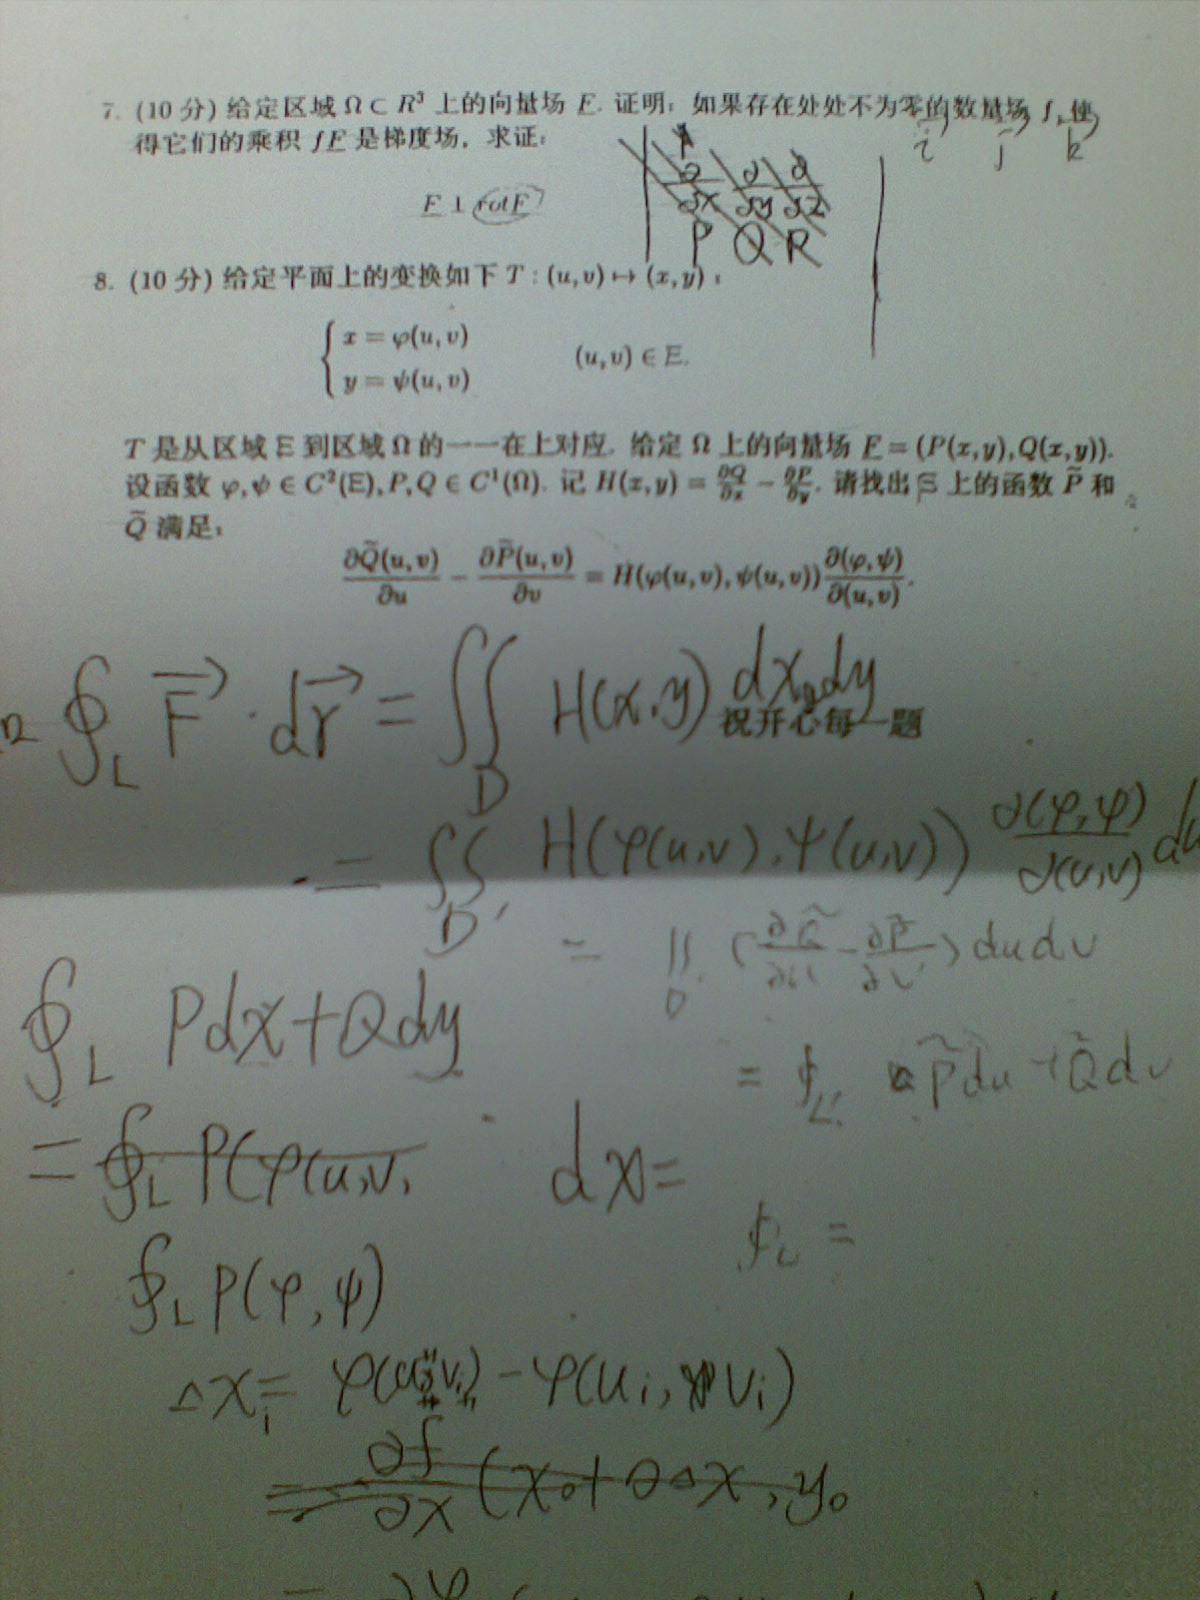 7. (10 分) 给定区域 Ω ⊂ R³ 上的向量场 F. 证明: 如果存在处处不为零的数量场 f, 使
i j k
得它们的乘积 fF 是梯度场, 求证:
∂/∂x ∂/∂y ∂/∂z
F ⊥ rotF
P Q R
8. (10 分) 给定平面上的变换如下 T : (u, v) ↦ (x, y) :
x = φ(u, v)
(u, v) ∈ E.
y = ψ(u, v)
T 是从区域 E 到区域 Ω 的一一在上对应. 给定 Ω 上的向量场 F = (P(x, y), Q(x, y)).
设函数 φ, ψ ∈ C²(E), P, Q ∈ C¹(Ω). 记 H(x, y) = ∂Q/∂x − ∂P/∂y. 请找出 E 上的函数 P̃ 和
Q̃ 满足:
∂Q̃(u, v)/∂u − ∂P̃(u, v)/∂v = H(φ(u, v), ψ(u, v)) ∂(φ, ψ)/∂(u, v).
∮_L F⃗ · dr⃗ = ∬_D H(x, y) dxdy
祝开心每一题
= ∬_D' H(φ(u,v), ψ(u,v)) ∂(φ,ψ)/∂(u,v) du
= ∬_D' (∂Q̃/∂u − ∂P̃/∂v) du dv
∮_L Pdx + Qdy
= ∮_L' P̃du + Q̃dv
= ∮_L P(φ(u,v,
dx =
∮_L =
∮_L P(φ, ψ)
Δx_i = φ( ) − φ(u_i, v_i)
= ∂f/∂x (x₀ + θΔx, y₀